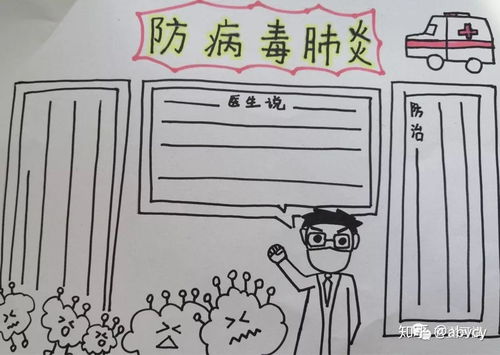 防病毒肺炎
医生说
防治
知乎 @abycy